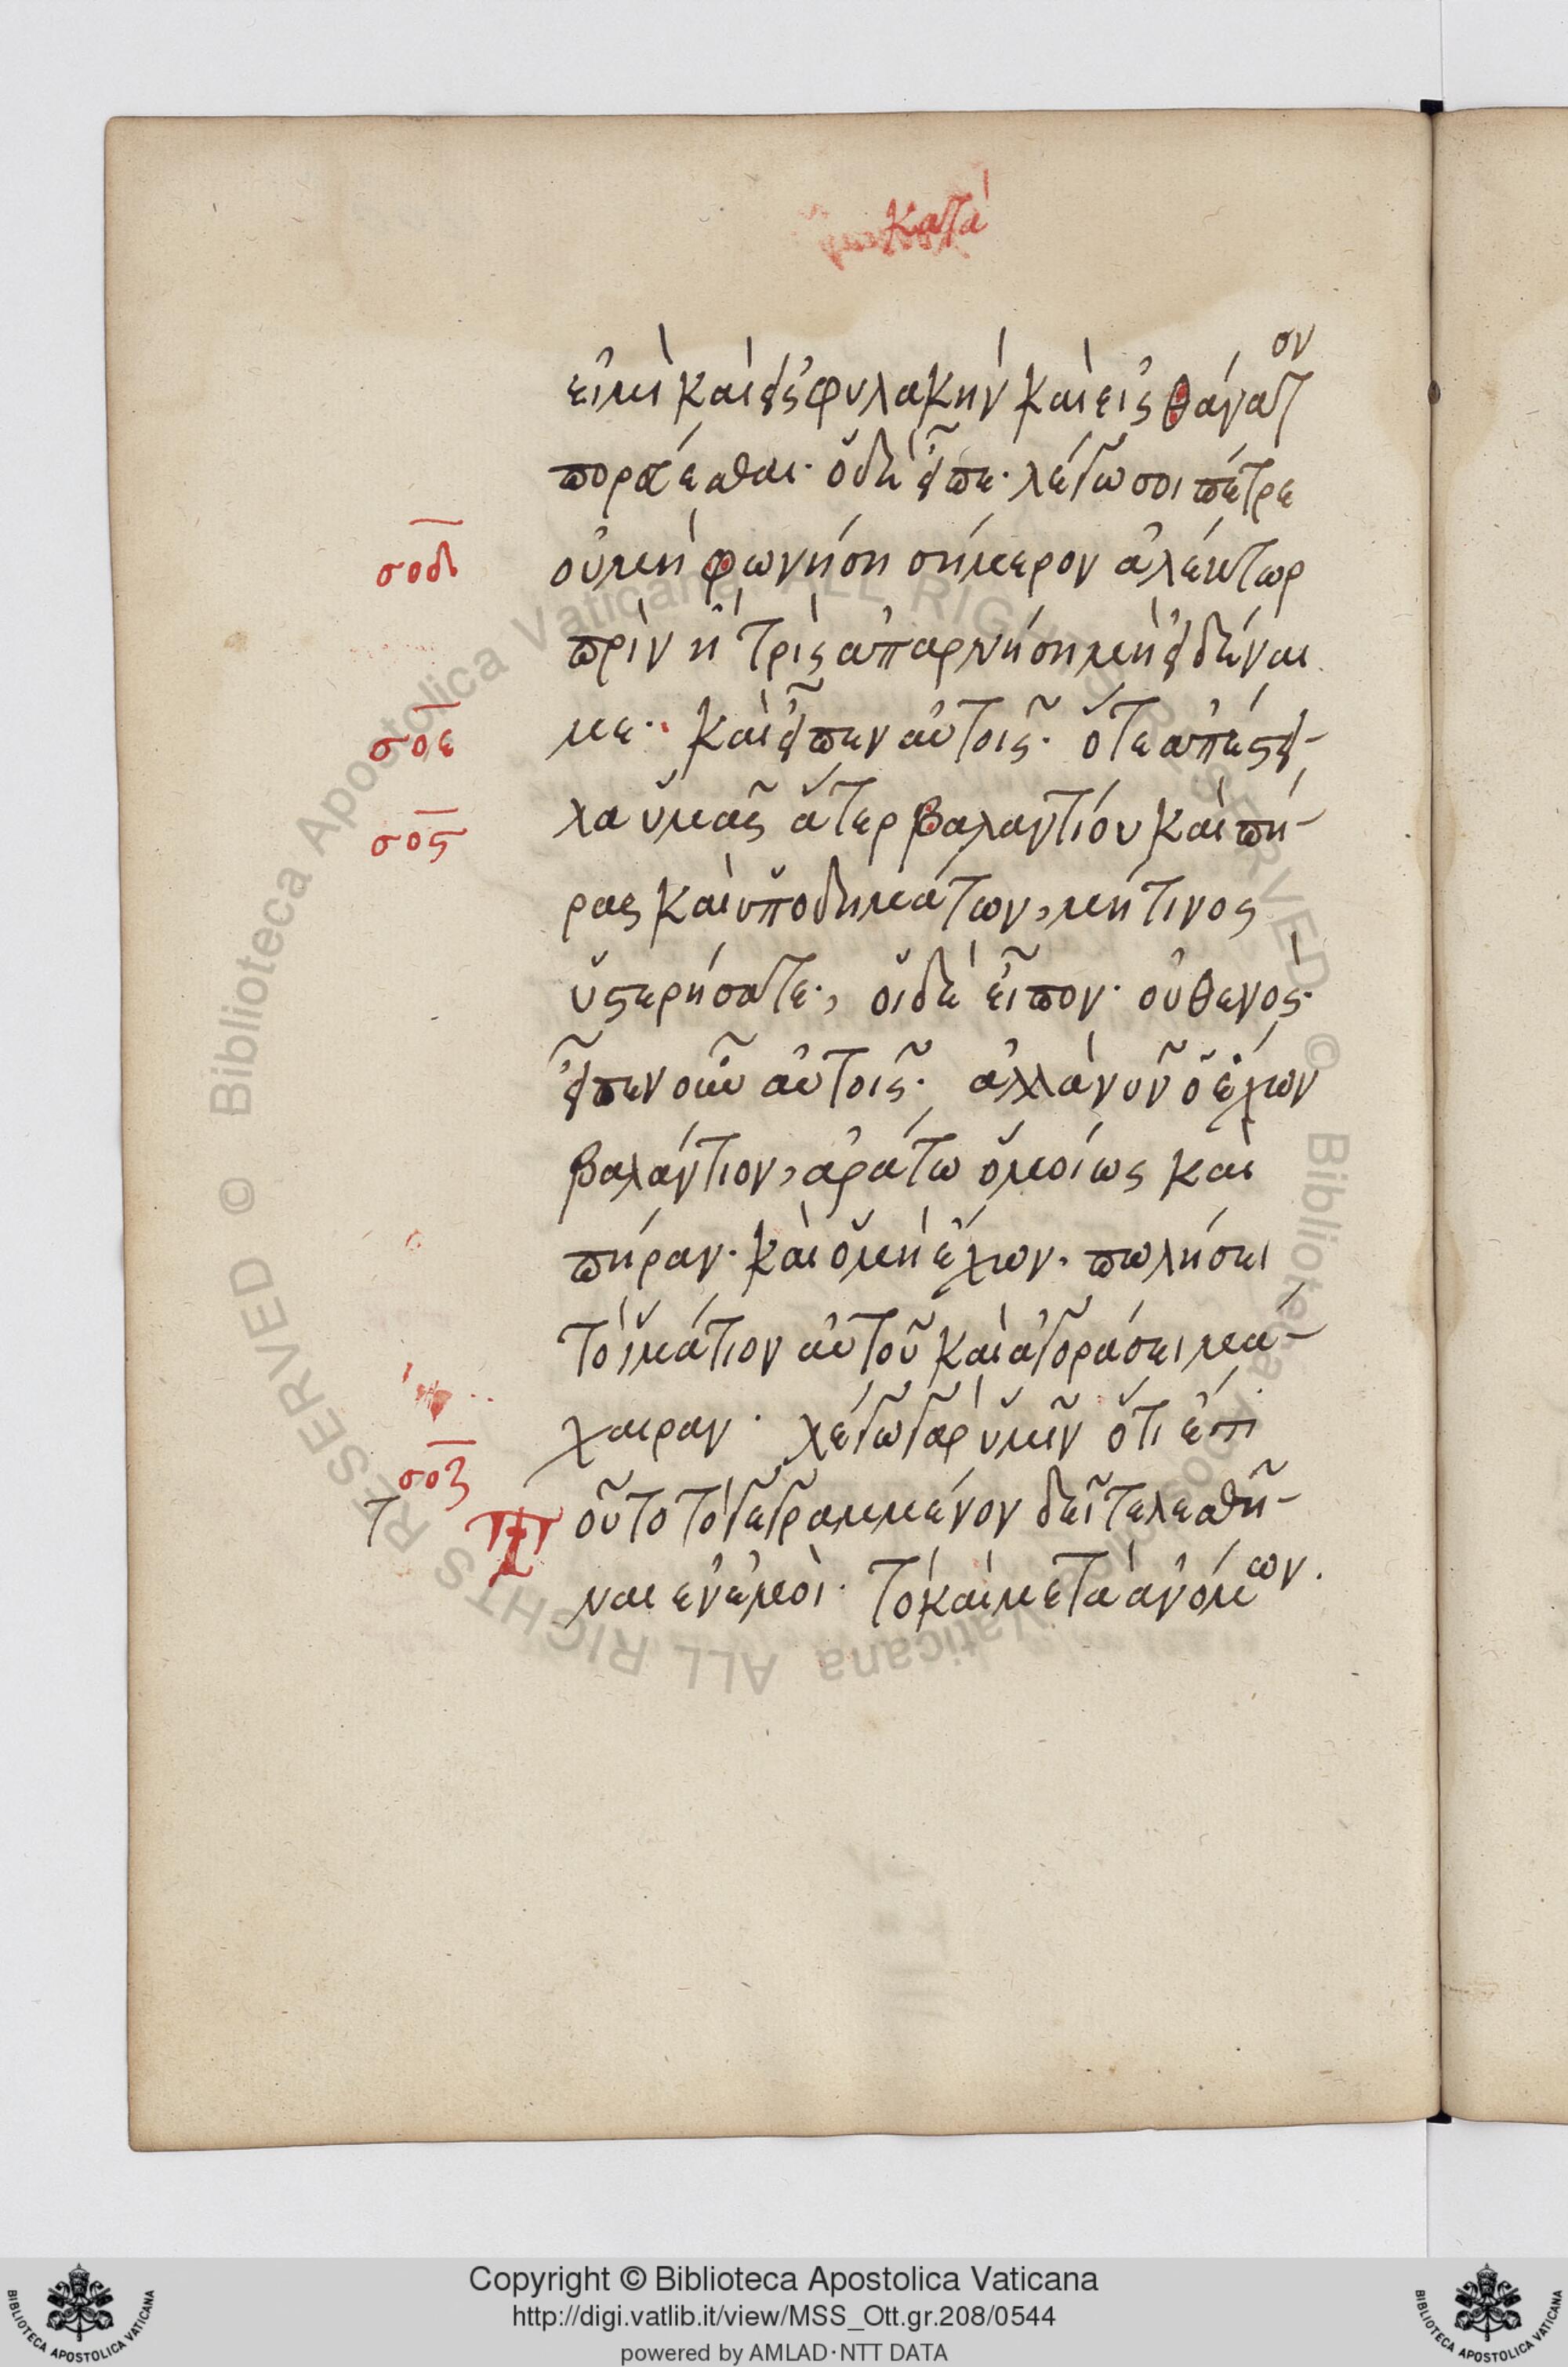 κατὰ
εἰμὶ καὶ εἰς φυλακὴν καὶ εἰς θάνατον
πορεύεσθαι· ὁ δὲ εἶπε· λέγω σοι πέτρε
σοδ οὐ μὴ φωνήση σήμερον ἀλέκτωρ
πρὶν ἢ τρὶς ἀπαρνήση μὴ εἰδέναι
σοε με· καὶ εἶπεν αὐτοῖς· ὅτε ἀπέστει-
σοϛ λα ὑμᾶς ἄτερ βαλαντίου καὶ πή-
ρας καὶ ὑποδημάτων, μή τινος
ὑστερήσατε·, οἱ δὲ εἶπον· οὐθενός·
εἶπεν οὖν αὐτοῖς· ἀλλὰ νῦν ὁ ἔχων
βαλάντιον, ἀράτω ὁμοίως καὶ
πήραν· καὶ ὁ μὴ ἔχων· πωλήσει
τὸ ἱμάτιον αὐτοῦ καὶ ἀγοράσει μά-
χαιραν· λέγω γὰρ ὑμῖν ὅτι ἔτι
σοζ τοῦτο τὸ γεγραμμένον δεῖ τελεσθῆ-
ναι ἐν ἐμοὶ· τὸ καὶ μετὰ ἀνόμων.
© Biblioteca Apostolica Vaticana ALL RIGHTS RESERVED © Biblioteca Apostolica Vaticana ALL RIGHTS RESERVED
Copyright © Biblioteca Apostolica Vaticana
http://digi.vatlib.it/view/MSS_Ott.gr.208/0544
powered by AMLAD·NTT DATA
BIBLIOTECA APOSTOLICA VATICANA
BIBLIOTECA APOSTOLICA VATICANA